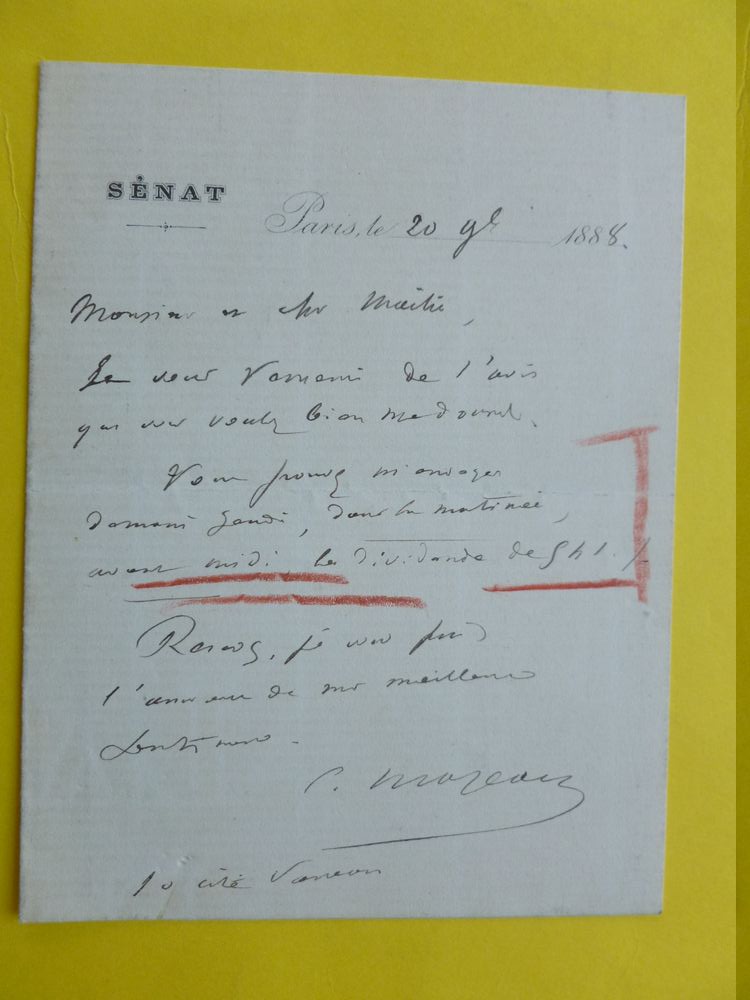 SÉNAT
Paris, le 20 9b 1888.
Monsieur et cher Maître,
Je vous remercie de l'avis
que vous voulez bien me donner.
Vous pouvez m'envoyer
demain jeudi, dans la matinée,
avant midi, le dividende de 541.
Recevez, je vous prie
l'assurance de mes meilleurs
sentiments.
C. Mazeau
10 cité Vaneau